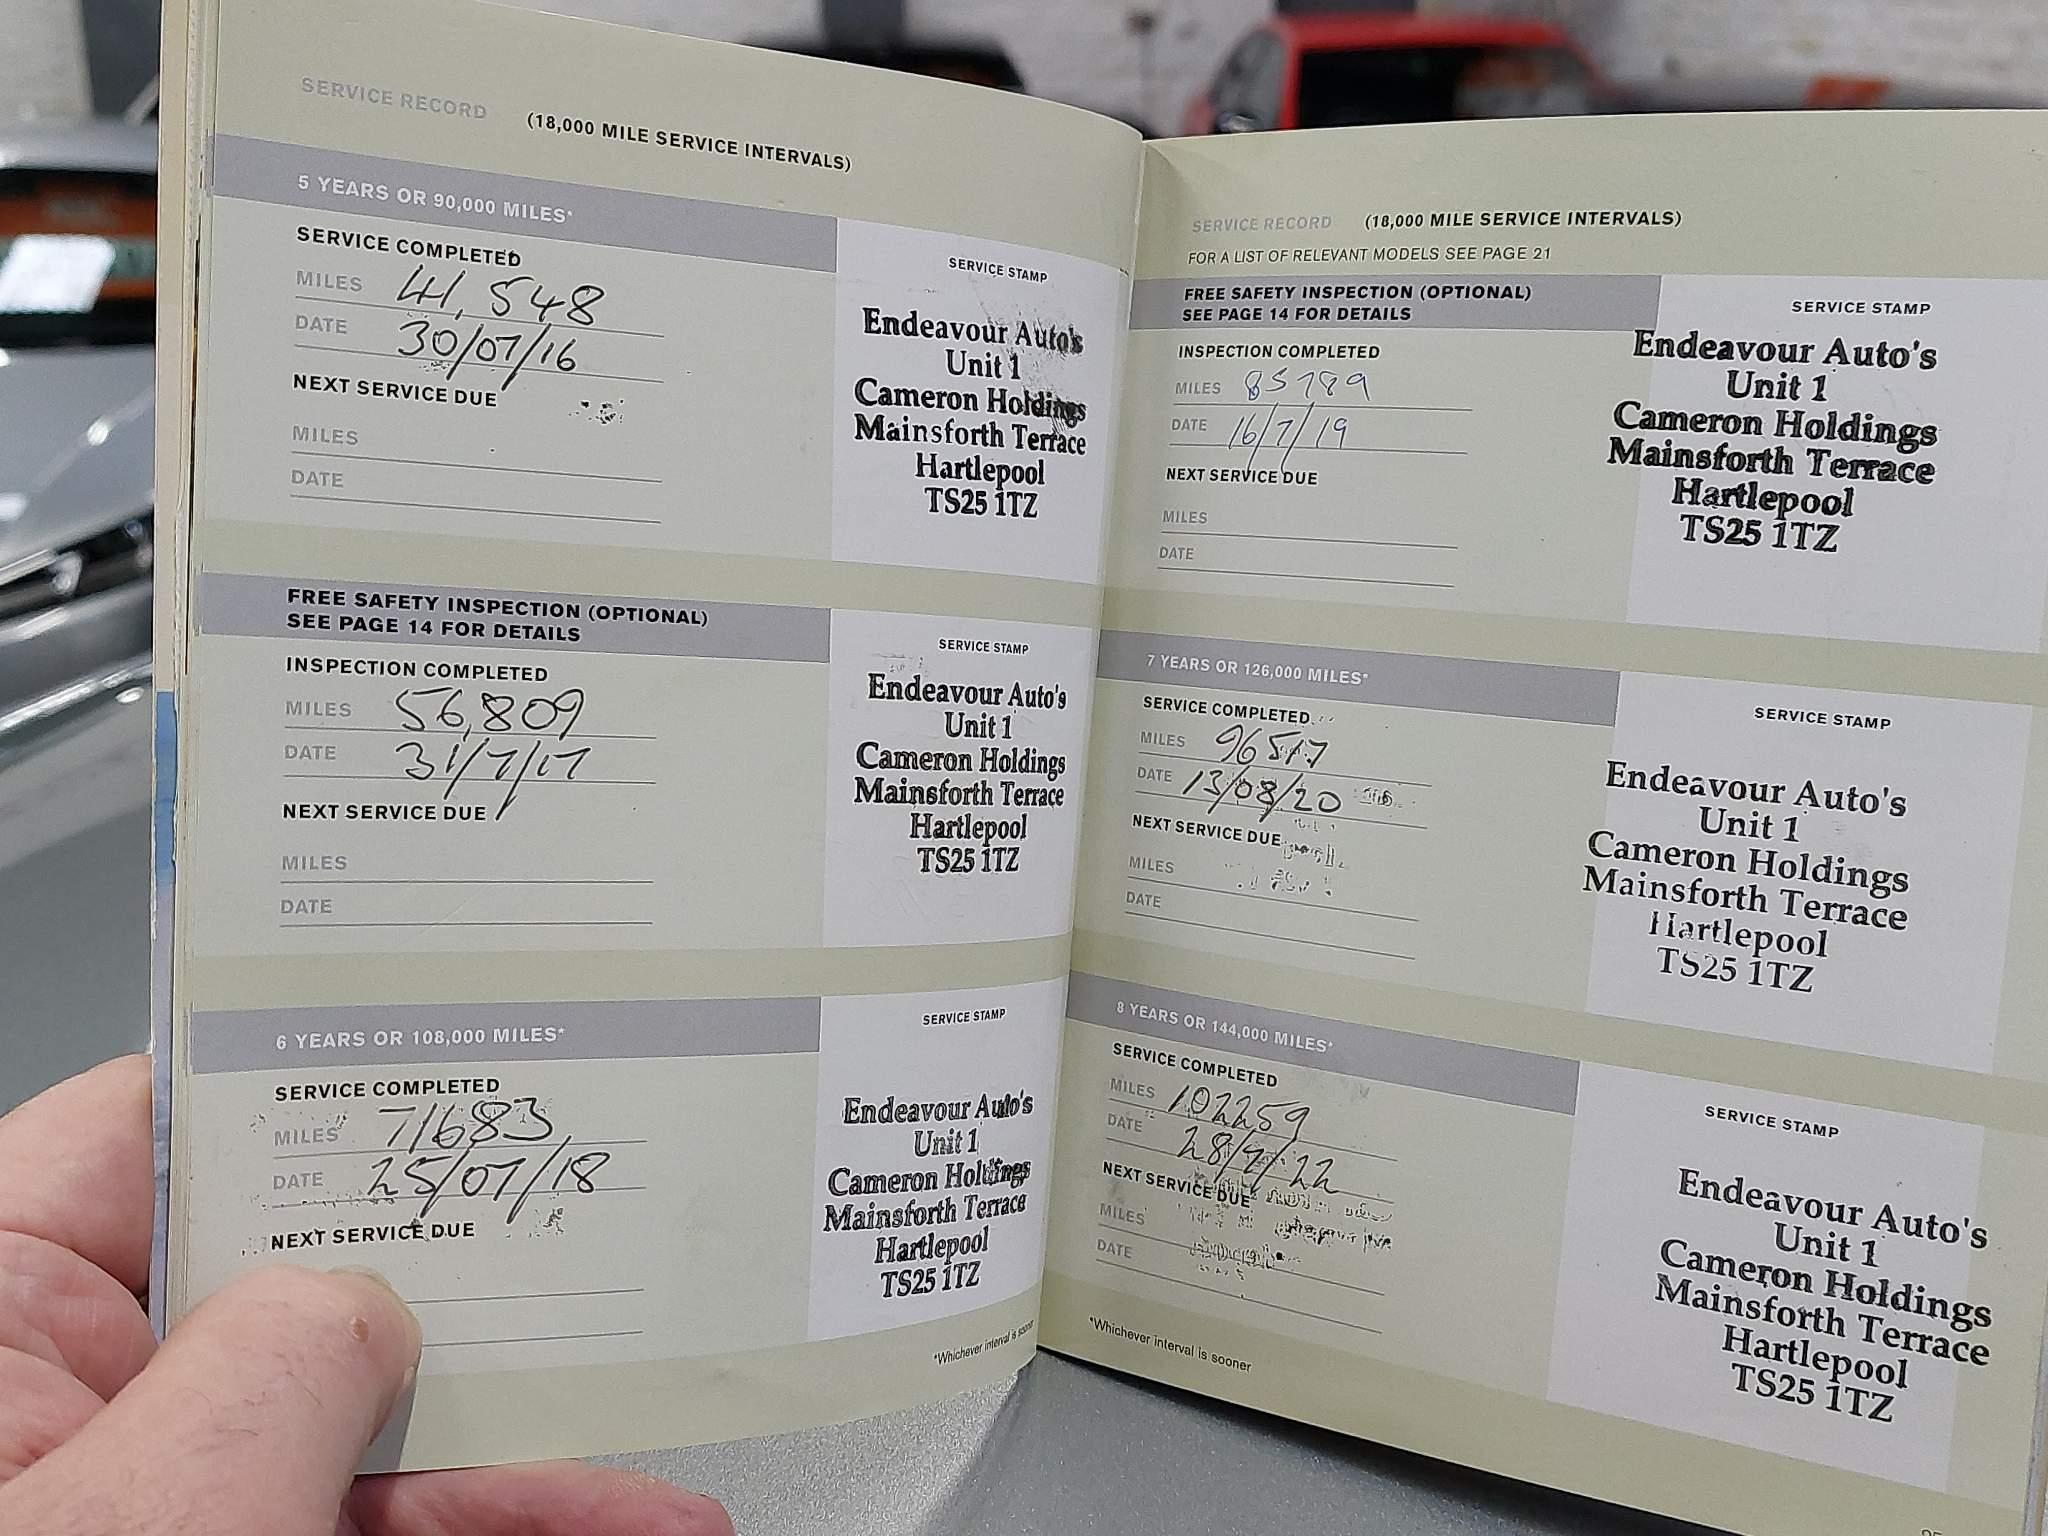 SERVICE RECORD (18,000 MILE SERVICE INTERVALS)
5 YEARS OR 90,000 MILES*
SERVICE COMPLETED
MILES 41,548
DATE 30/07/16
NEXT SERVICE DUE
MILES
DATE
SERVICE STAMP
Endeavour Auto's
Unit 1
Cameron Holdings
Mainsforth Terrace
Hartlepool
TS25 1TZ
FREE SAFETY INSPECTION (OPTIONAL)
SEE PAGE 14 FOR DETAILS
INSPECTION COMPLETED
MILES 56,809
DATE 31/7/17
NEXT SERVICE DUE
MILES
DATE
SERVICE STAMP
Endeavour Auto's
Unit 1
Cameron Holdings
Mainsforth Terrace
Hartlepool
TS25 1TZ
6 YEARS OR 108,000 MILES*
SERVICE COMPLETED
MILES 71683
DATE 25/07/18
NEXT SERVICE DUE
SERVICE STAMP
Endeavour Auto's
Unit 1
Cameron Holdings
Mainsforth Terrace
Hartlepool
TS25 1TZ
*Whichever interval is sooner
SERVICE RECORD (18,000 MILE SERVICE INTERVALS)
FOR A LIST OF RELEVANT MODELS SEE PAGE 21
FREE SAFETY INSPECTION (OPTIONAL)
SEE PAGE 14 FOR DETAILS
INSPECTION COMPLETED
MILES 85789
DATE 16/7/19
NEXT SERVICE DUE
MILES
DATE
SERVICE STAMP
Endeavour Auto's
Unit 1
Cameron Holdings
Mainsforth Terrace
Hartlepool
TS25 1TZ
7 YEARS OR 126,000 MILES*
SERVICE COMPLETED
MILES 96517
DATE 13/08/20
NEXT SERVICE DUE
MILES
DATE
SERVICE STAMP
Endeavour Auto's
Unit 1
Cameron Holdings
Mainsforth Terrace
Hartlepool
TS25 1TZ
8 YEARS OR 144,000 MILES*
SERVICE COMPLETED
MILES 102259
DATE 28/4/22
NEXT SERVICE DUE
MILES
DATE
SERVICE STAMP
Endeavour Auto's
Unit 1
Cameron Holdings
Mainsforth Terrace
Hartlepool
TS25 1TZ
*Whichever interval is sooner